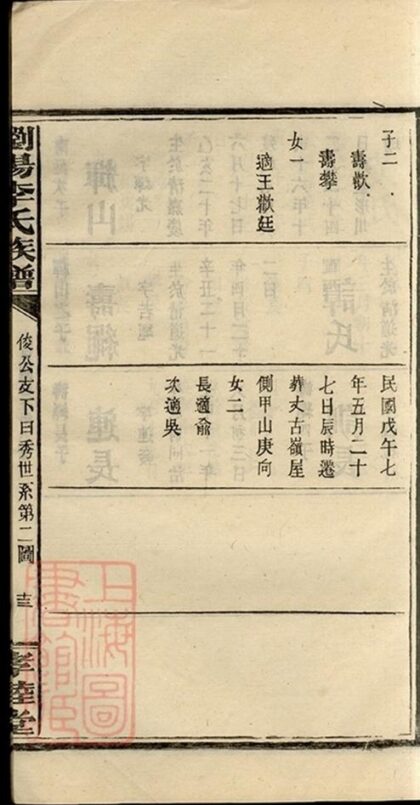 子二
壽歡
壽攀
女一
適王廷
民國戊午七
年五月二十
七日辰時遷
葬丈古嶺屋
側甲山庚向
女二
長適俞
次適吳
瀏陽李氏族譜
俊公支下曰秀世系第二圖
十三
孝睦堂
上海圖
書館藏